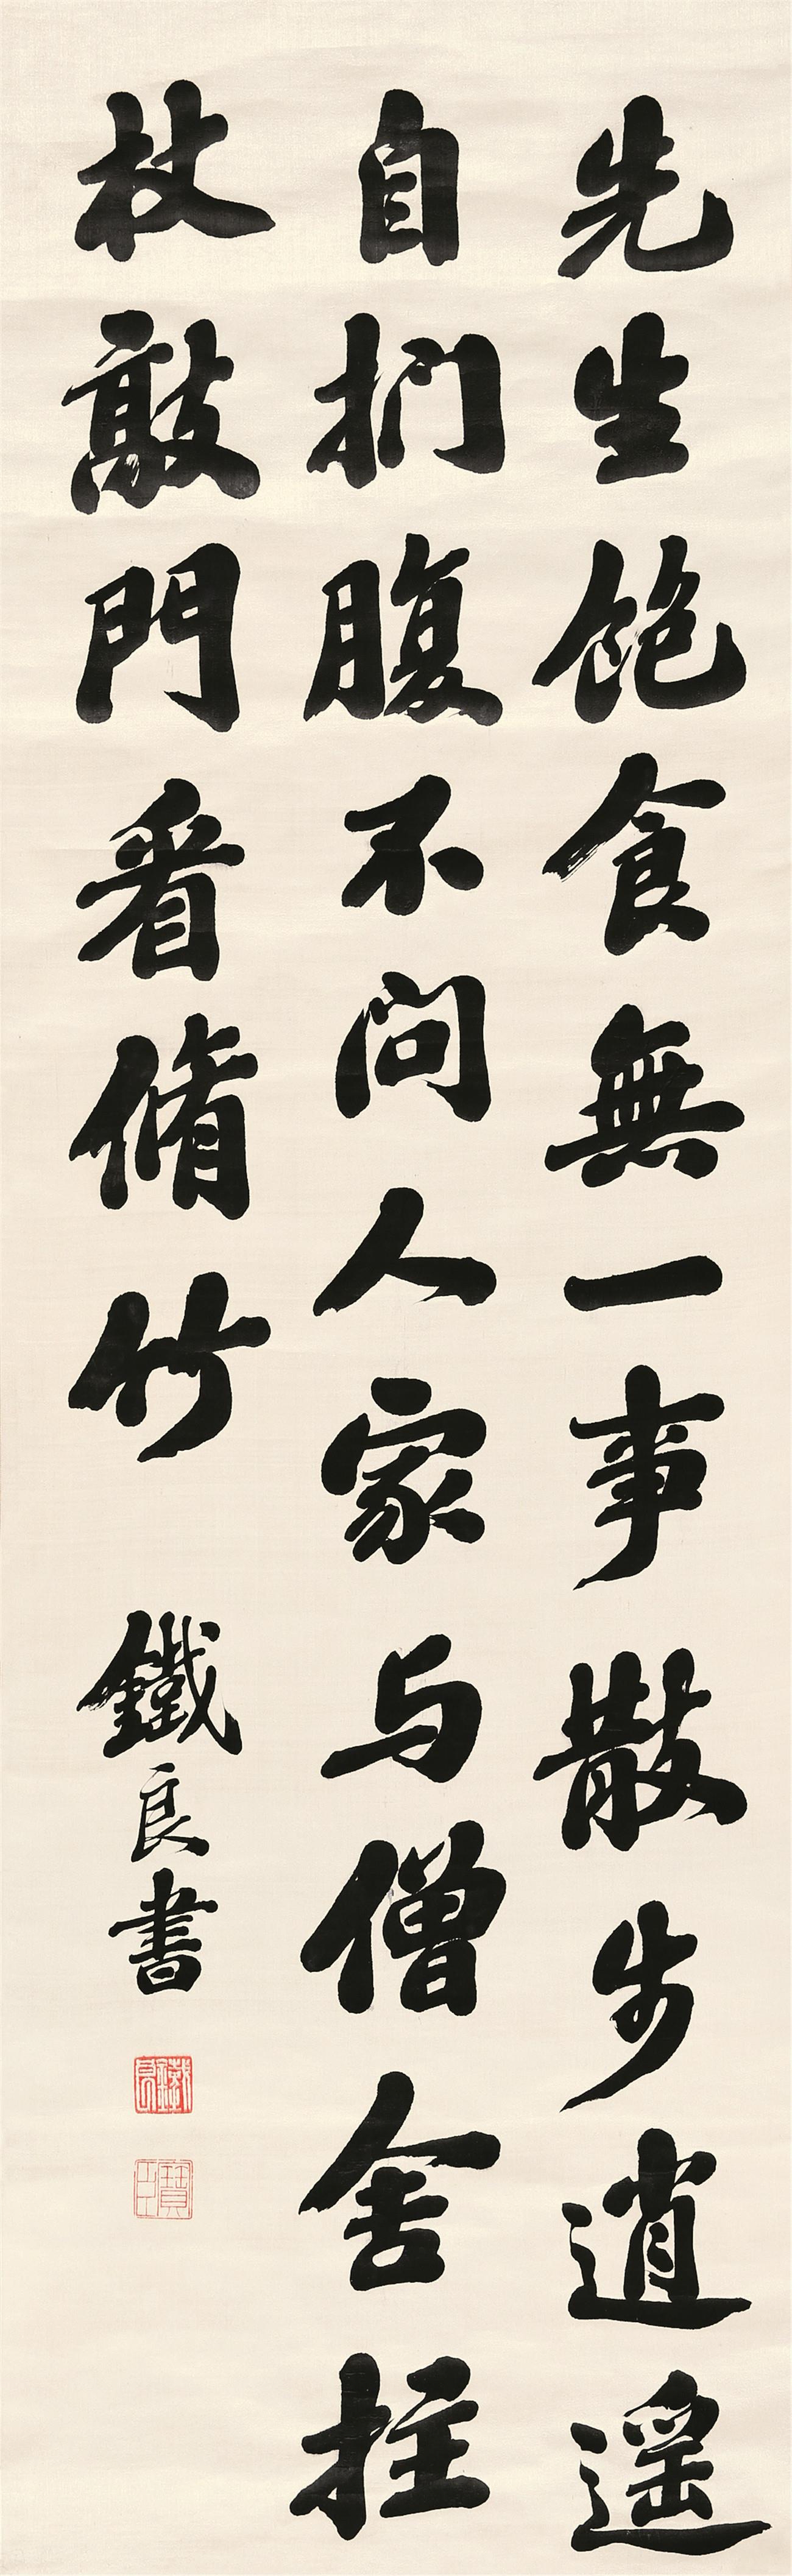 先生飽食無一事散步逍遥
自捫腹不问人家与僧舍拄
杖敲門看脩竹
鐵良書
鐵良
寶臣